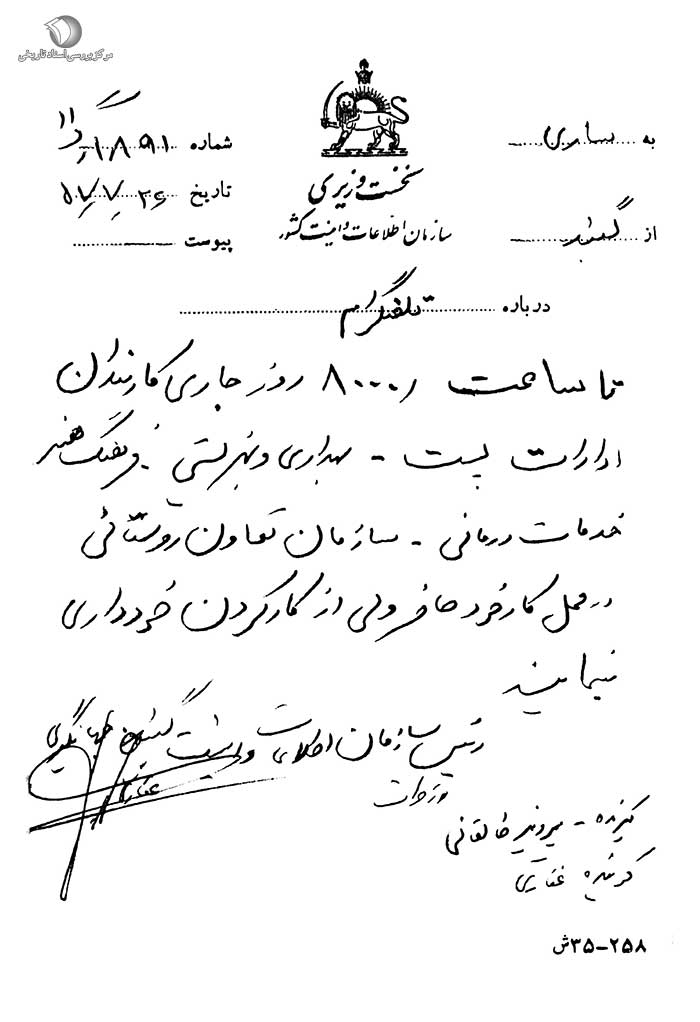 مرکز بررسی اسناد تاریخی
به ساری
از گنبد
نخست وزیری
سازمان اطلاعات و امنیت کشور
شماره ۱۸۹۱
تاریخ ۵۷/۷/۳۰
پیوست
درباره تلفنگرام
تا ساعت ۸۰۰۰ روز جاری کارمندان
ادارات پست - بهداری و بهزیستی - فرهنگ هنر
خدمات درمانی - سازمان تعاون روستائی
در محل کار خود حاضر ولی از کار کردن خودداری
مینمایند
رئیس سازمان اطلاعات و امنیت گنبد جهانگیری
گیرنده - طالقانی
گوینده غفاری
۲۵۸-۳۵ش